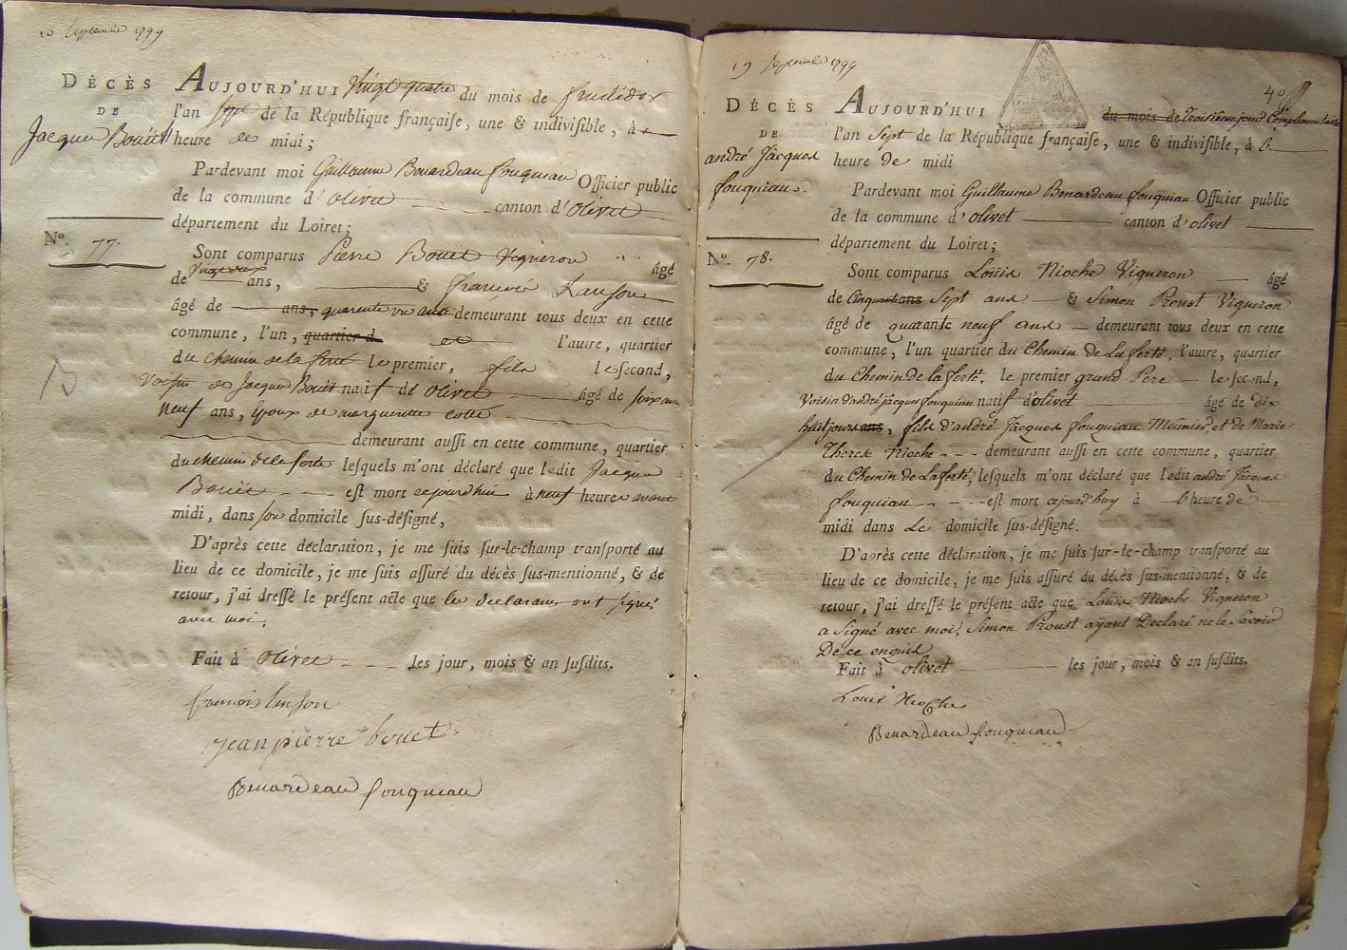 10 Septembre 1799
DÉCÈS
DE
Jacques Bouët
N°. 77.
AUJOURD'HUI vingt quatre du mois de fructidor
l'an sept de la République françaiſe, une & indiviſible, à
heure de midi ;
Pardevant moi Guillaume Benardeau fouquiau Officier public
de la commune d'olivet canton d'Olivet
département du Loiret ;
Sont comparus Pierre Bouet Vigneron âgé
de ans, & francois
âgé de ans, quarente demeurant tous deux en cette
commune, l'un, quartier d l'autre, quartier
du chemin de la ferté le premier, fils le ſecond,
Voisin de Jacques Bouët natif de olivet âgé de soixante
neuf ans, Epoux de marguerite
demeurant auſſi en cette commune, quartier
du chemin de la ferté leſquels m'ont déclaré que ledit Jacques
Bouët - - - eſt mort aujourd'hui à neuf heures avant
midi, dans son domicile ſus-déſigné,
D'après cette déclaration, je me ſuis ſur-le-champ tranſporté au
lieu de ce domicile, je me ſuis aſſuré du décès ſus-mentionné, & de
retour, j'ai dreſſé le préſent acte que les declarans ont signés
avec moi,
Fait à Olivet - - - les jour, mois & an ſuſdits.
francois linson
jean pierre bouet
Benardeau fouquiau
19 Septembre 1799
40
DÉCÈS
DE
andré Jacques
fouquiau.
N°. 78.
AUJOURD'HUI du mois de troisieme jour Complementaire
l'an sept de la République françaiſe, une & indiviſible, à 6
heure de midi
Pardevant moi Guillaume Benardeau fouquiau Officier public
de la commune d'olivet canton d'olivet
département du Loiret ;
Sont comparus Louis Nioche Vigneron âgé
de Cinquante ans Sept ans & Simon Proust Vigneron
âgé de quarante neuf ans demeurant tous deux en cette
commune, l'un quartier du Chemin de La ferté, l'autre, quartier
du Chemin de la ferté. le premier grand Pere le ſecond,
Voisin d'andré jacques fouquiau natif d'olivet âgé de dix
huit jours ans, fils d'andré Jacques fouquiau Meunier et de Marie
Therese Nioche - - - demeurant auſſi en cette commune, quartier
du Chemin de Laferté, leſquels m'ont déclaré que ledit andré Jacques
fouquiau - - - eſt mort aujourd'huy à 6 heure de
midi dans Le domicile ſus-déſigné.
D'après cette déclaration, je me ſuis ſur-le-champ tranſporté au
lieu de ce domicile, je me ſuis aſſuré du décès ſus-mentionné, & de
retour, j'ai dreſſé le préſent acte que Louis Nioche Vigneron
a Signé avec moi, Simon Proust ayant Declaré ne le Savoir
De ce enquis
Fait à olivet les jour, mois & an ſuſdits.
Louis Nioche
Benardeau fouquiau